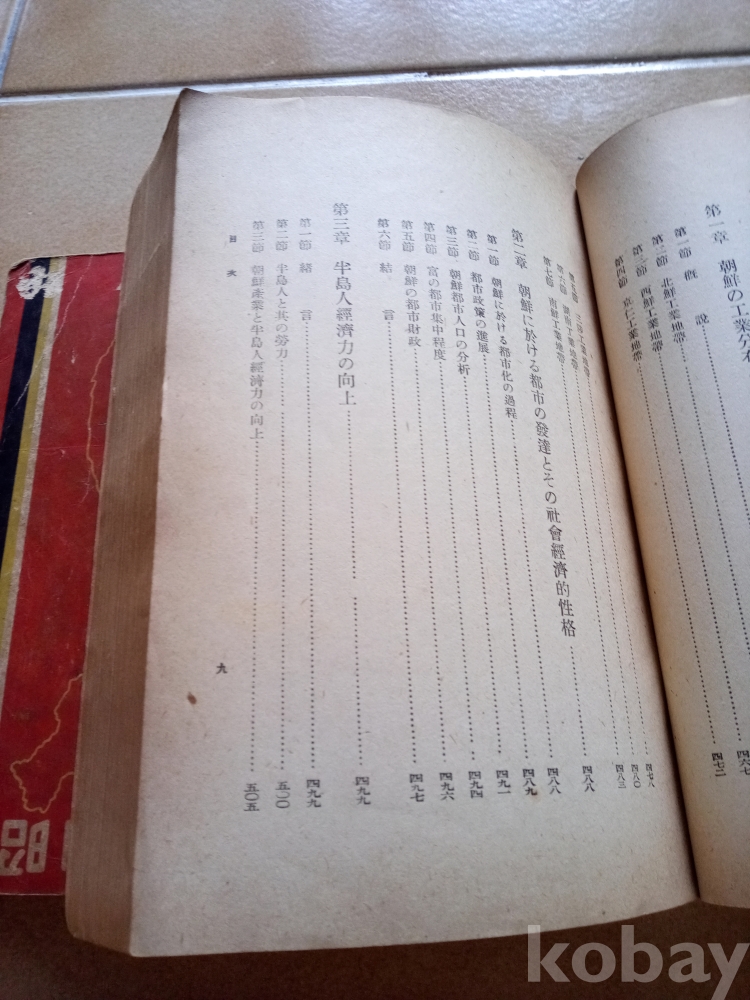 第一章 朝鮮の工業分
第一節 概說
第二節 北鮮工業地帶
第三節 西鮮工業地帶……四六七
第四節 京仁工業地帶……四七二
第五節 三陟工業地帶……四七八
第六節 湖南工業地帶……四八〇
第七節 南鮮工業地帶……四八三
第二章 朝鮮に於ける都市の發達とその社會經濟的性格……四八八
第一節 朝鮮に於ける都市化の過程……四八八
第二節 都市政策の進展……四八九
第三節 朝鮮都市人口の分析……四九一
第四節 富の都市集中程度……四九四
第五節 朝鮮の都市財政……四九六
第六節 結言……四九七
第三章 半島人經濟力の向上……四九九
第一節 緖言……四九九
第二節 半島人と其の勞力……五〇〇
第三節 朝鮮產業と半島人經濟力の向上……五〇五
目次
九
昭
kobay